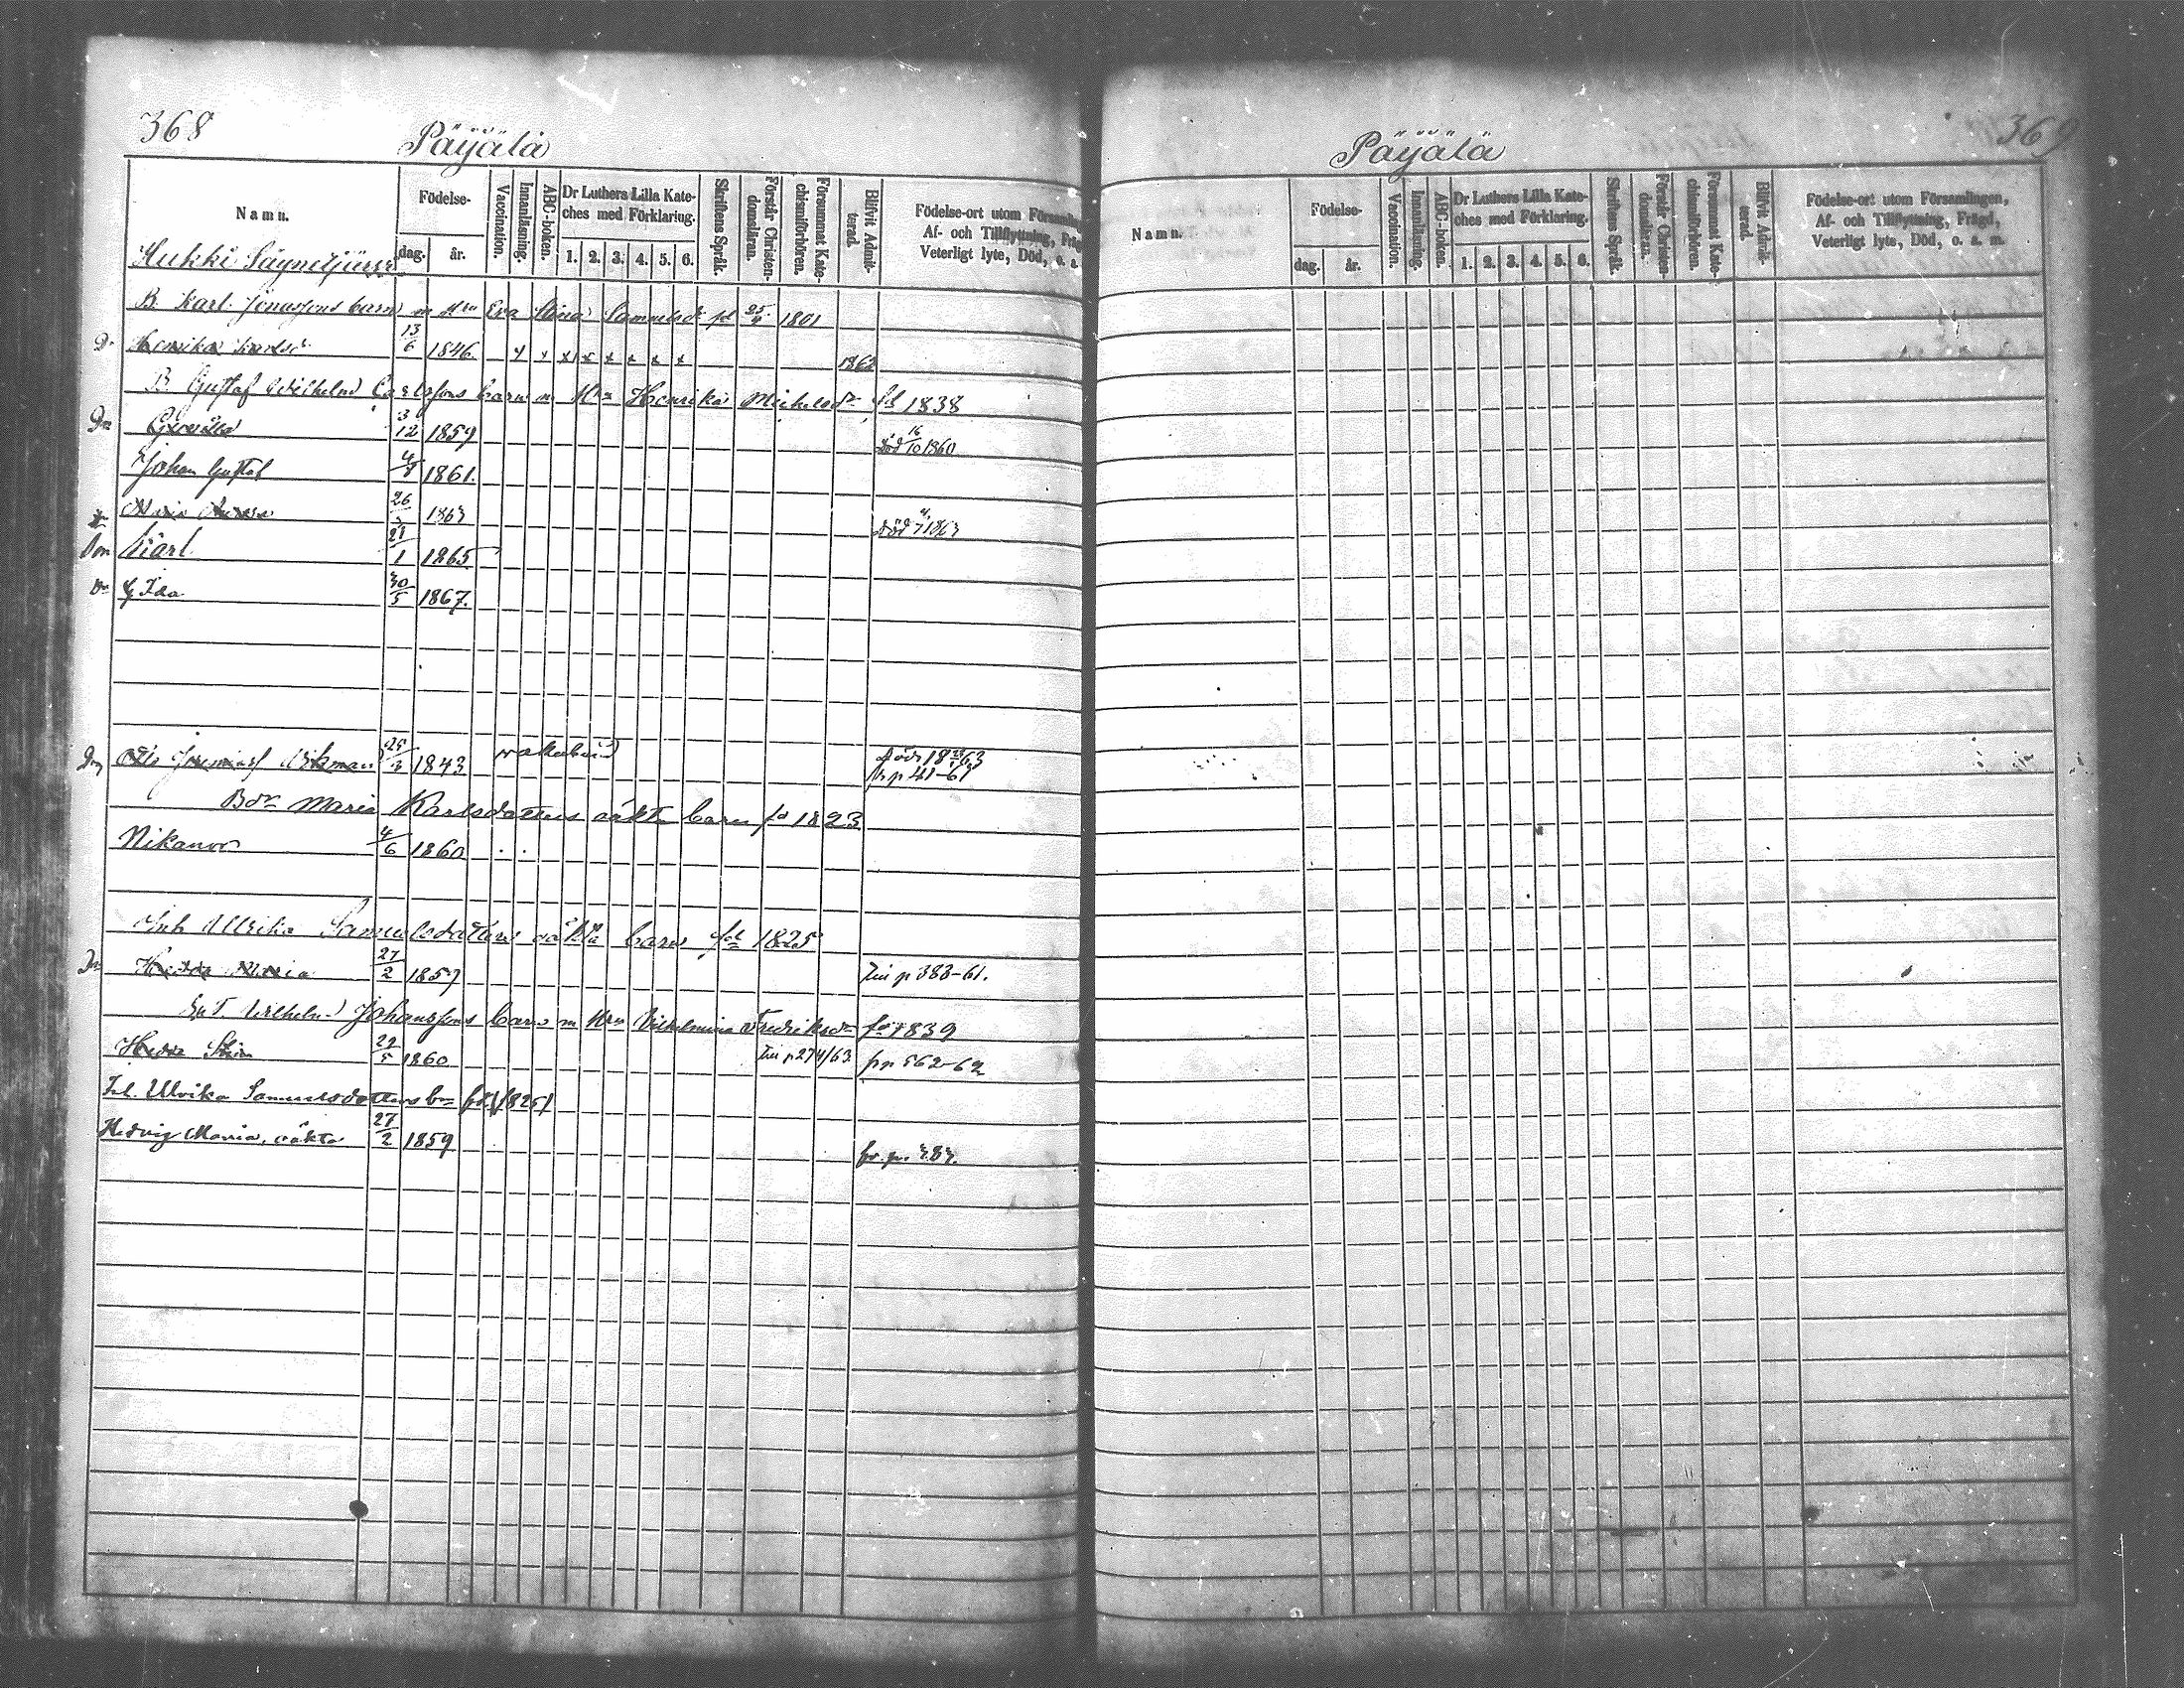 368
Päyälä
Namn.
Födelse-
dag.
år.
Vaccination.
Innanläsning.
ABC-boken.
Dr Luthers Lilla Kate-
ches med Förklaring.
1. 2. 3. 4. 5. 6.
Skriftens Språk.
Förstår Christen-
domsläran.
Försummat Kate-
chismiförhören.
Blifvit Admit-
terad.
Födelse-ort utom Församlin
Af- och Tillflyttning, Fräg
Veterligt lyte, Död, o. a.
Hukki
B. Karl Jonassons barn m Hru Eva Stina Samuelsdr fd 25/4 1801
Dr Henrika Karlsdr 13/6 1846 x x x x x x x x 1862
B Gustaf Wilhelm Carlssons barn m Hru Henrika Michelsdr fd 1838
Dr 3/12 1859 död 16/10 1860
Johan Gustaf 4/8 1861.
Maria 26/3 1863 död 1863
Son Karl 21/1 1865
Dr Ida 30/5 1867.
Otto Wikman 1843 död 1863
fr p 41-61
Bdr Maria Karlsdotters oäkta barn fd 1823
Nikanor 4/6 1860
Inh Ullrika Samuelsdotters oäkta barn fd 1825
Dr Hedda Maria 27/2 1857 Till p 383-61.
Wilhelm Johanssons barn m Hru Vilhelmina Fredriksdr fd 1839
Hedda Stina 29/5 1860 Till p 274/63 fr p 562-62
Inh. Ulrika Samuelsdotters bn fd. 1825
Hedvig Maria, oäkta 27/2 1859 fr. p. 383.
Päyälä
369
Namn.
Födelse-
dag.
år.
Vaccination.
Innanläsning.
ABC-boken.
Dr Luthers Lilla Kate-
ches med Förklaring.
1. 2. 3. 4. 5. 6.
Skriftens Språk.
Förstår Christen-
domsläran.
Försummat Kate-
chismiförhören.
Blifvit Admit-
terad.
Födelse-ort utom Församlingen,
Af- och Tillflyttning, Frägd,
Veterligt lyte, Död, o. a. m.